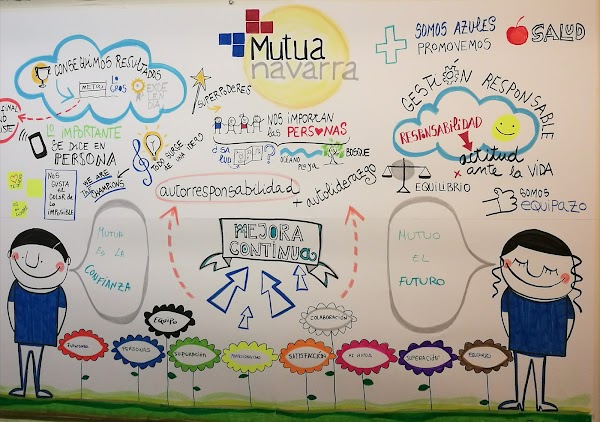 Mutua
navarra
SOMOS AZULES
PROMOVEMOS
SALUD
CONSEGUIMOS RESULTADOS
LO
GROS
EXCE
LEN
CIA
SUPERPODERES
GESTIÓN RESPONSABLE
RESPONSABILIDAD
actitud
ante la VIDA
NOS IMPORTAN
LAS PERSONAS
LO IMPORTANTE
SE DICE EN
PERSONA
TODO SURGE
DE UNA IDEA
OCÉANO
PLAYA
BOSQUE
WE ARE
THE
CHAMPIONS
NOS
GUSTA EL
COLOR DE
LO
IMPOSIBLE
autorresponsabilidad
+ autoliderazgo
EQUILIBRIO
SOMOS
EQUIPAZO
MUTUA
ES LA
CONFIANZA
MEJORA
CONTINUA
MUTUO
EL
FUTURO
EQUIPO
COLABORACIÓN
PERSONAS
SUPERACIÓN
SATISFACCIÓN
SUPERACIÓN